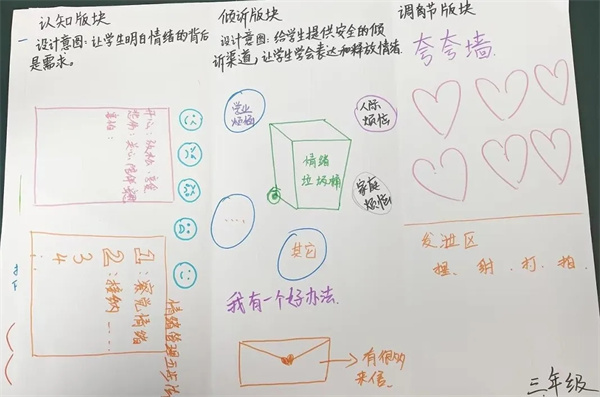 认知版块
设计意图：让学生明白情绪的背后
是需求。
开心：
害怕：
1：察觉情绪
2：接纳……
3
4
倾诉版块
设计意图：给学生提供安全的倾
诉渠道，让学生学会表达和释放情绪.
学业
烦恼
人际
烦恼
情绪
垃圾桶
家庭
烦恼
.....
其它
我有一个好办法.
有很多
来信.
调节版块
夸夸墙.
发泄区
捏、射．打．拍
三年级